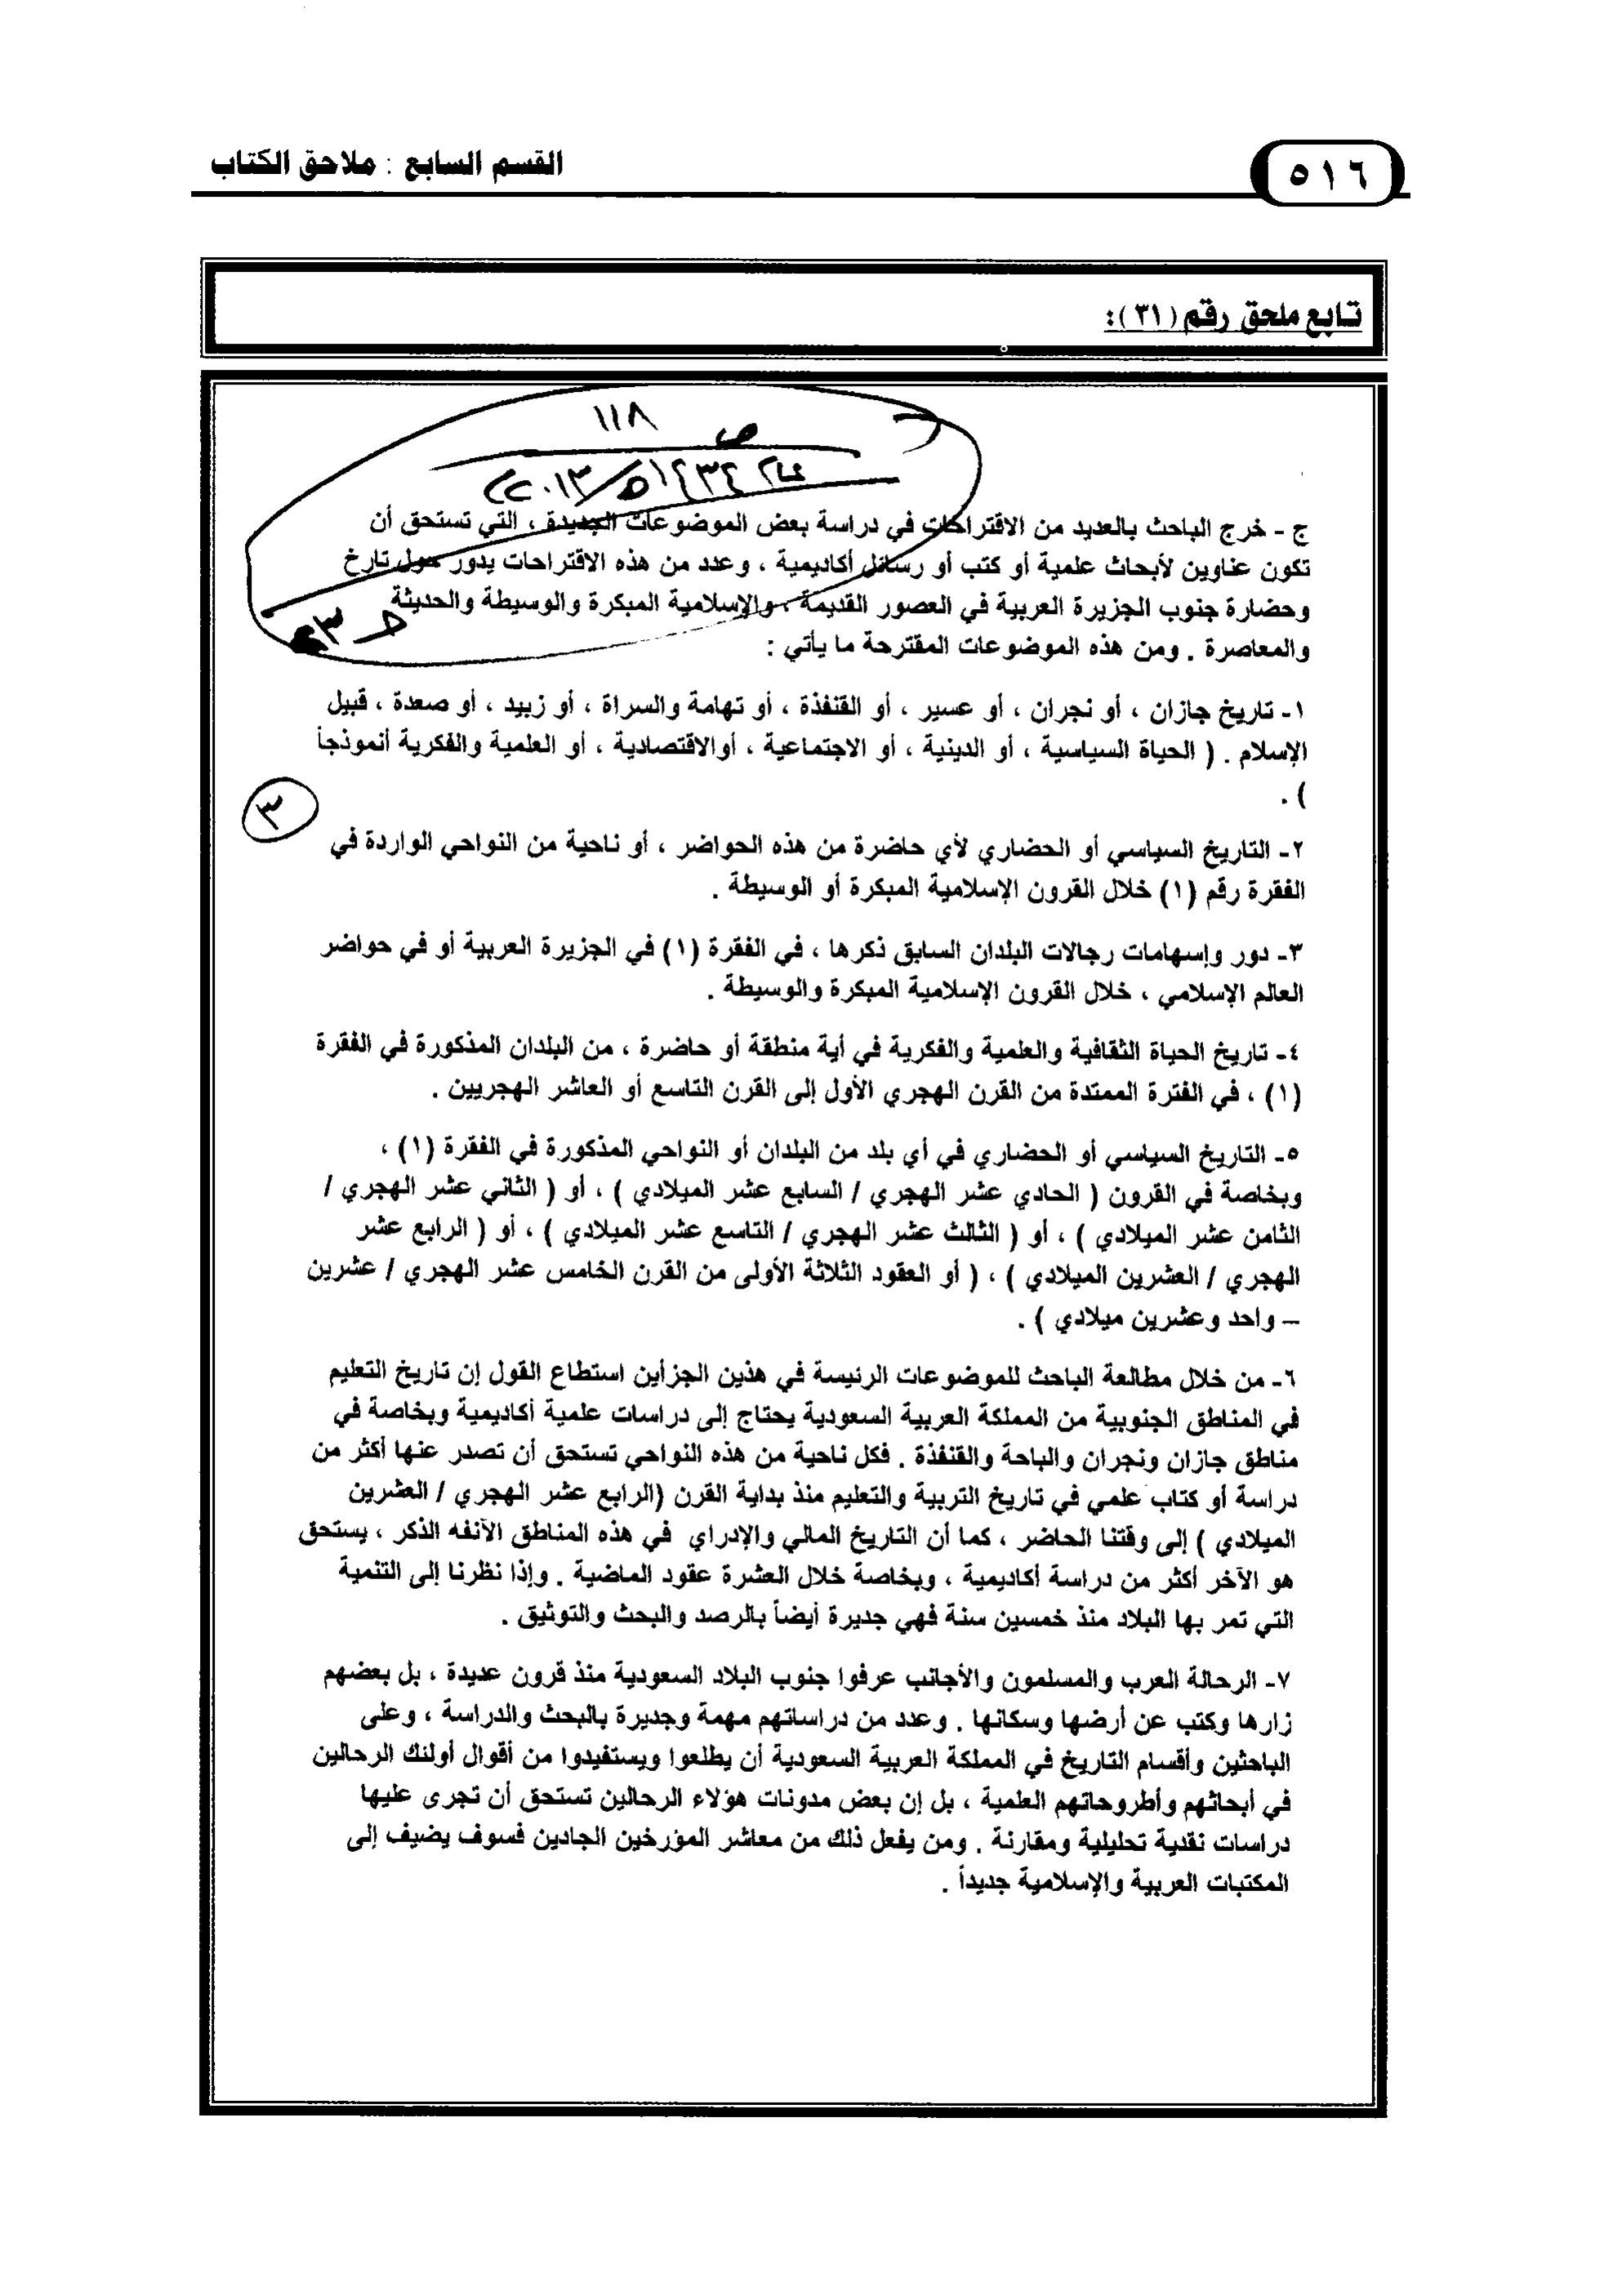 ٥١٦
القسم السابع : ملاحق الكتاب
تابع ملحق رقم (٣١):
١١٨
ص
١٤٣٤هـ/٢٠١٣
ج - خرج الباحث بالعديد من الاقتراحات في دراسة بعض الموضوعات الجديدة ، التي تستحق أن
تكون عناوين لأبحاث علمية أو كتب أو رسائل أكاديمية ، وعدد من هذه الاقتراحات يدور حول تارخ
وحضارة جنوب الجزيرة العربية في العصور القديمة ، والإسلامية المبكرة والوسيطة والحديثة
والمعاصرة . ومن هذه الموضوعات المقترحة ما يأتي :
١- تاريخ جازان ، أو نجران ، أو عسير ، أو القنفذة ، أو تهامة والسراة ، أو زبيد ، أو صعدة ، قبيل
الإسلام . ( الحياة السياسية ، أو الدينية ، أو الاجتماعية ، أوالاقتصادية ، أو العلمية والفكرية أنموذجاً
) .
٣
٢- التاريخ السياسي أو الحضاري لأي حاضرة من هذه الحواضر ، أو ناحية من النواحي الواردة في
الفقرة رقم (١) خلال القرون الإسلامية المبكرة أو الوسيطة .
٣- دور وإسهامات رجالات البلدان السابق ذكرها ، في الفقرة (١) في الجزيرة العربية أو في حواضر
العالم الإسلامي ، خلال القرون الإسلامية المبكرة والوسيطة .
٤- تاريخ الحياة الثقافية والعلمية والفكرية في أية منطقة أو حاضرة ، من البلدان المذكورة في الفقرة
(١) ، في الفترة الممتدة من القرن الهجري الأول إلى القرن التاسع أو العاشر الهجريين .
٥- التاريخ السياسي أو الحضاري في أي بلد من البلدان أو النواحي المذكورة في الفقرة (١) ،
وبخاصة في القرون ( الحادي عشر الهجري / السابع عشر الميلادي ) ، أو ( الثاني عشر الهجري /
الثامن عشر الميلادي ) ، أو ( الثالث عشر الهجري / التاسع عشر الميلادي ) ، أو ( الرابع عشر
الهجري / العشرين الميلادي ) ، ( أو العقود الثلاثة الأولى من القرن الخامس عشر الهجري / عشرين
– واحد وعشرين ميلادي ) .
٦- من خلال مطالعة الباحث للموضوعات الرئيسة في هذين الجزأين استطاع القول إن تاريخ التعليم
في المناطق الجنوبية من المملكة العربية السعودية يحتاج إلى دراسات علمية أكاديمية وبخاصة في
مناطق جازان ونجران والباحة والقنفذة . فكل ناحية من هذه النواحي تستحق أن تصدر عنها أكثر من
دراسة أو كتاب علمي في تاريخ التربية والتعليم منذ بداية القرن (الرابع عشر الهجري / العشرين
الميلادي ) إلى وقتنا الحاضر ، كما أن التاريخ المالي والإدراي في هذه المناطق الآنفه الذكر ، يستحق
هو الآخر أكثر من دراسة أكاديمية ، وبخاصة خلال العشرة عقود الماضية . وإذا نظرنا إلى التنمية
التي تمر بها البلاد منذ خمسين سنة فهي جديرة أيضاً بالرصد والبحث والتوثيق .
٧- الرحالة العرب والمسلمون والأجانب عرفوا جنوب البلاد السعودية منذ قرون عديدة ، بل بعضهم
زارها وكتب عن أرضها وسكانها . وعدد من دراساتهم مهمة وجديرة بالبحث والدراسة ، وعلى
الباحثين وأقسام التاريخ في المملكة العربية السعودية أن يطلعوا ويستفيدوا من أقوال أولئك الرحالين
في أبحاثهم وأطروحاتهم العلمية ، بل إن بعض مدونات هؤلاء الرحالين تستحق أن تجرى عليها
دراسات نقدية تحليلية ومقارنة . ومن يفعل ذلك من معاشر المؤرخين الجادين فسوف يضيف إلى
المكتبات العربية والإسلامية جديداً .